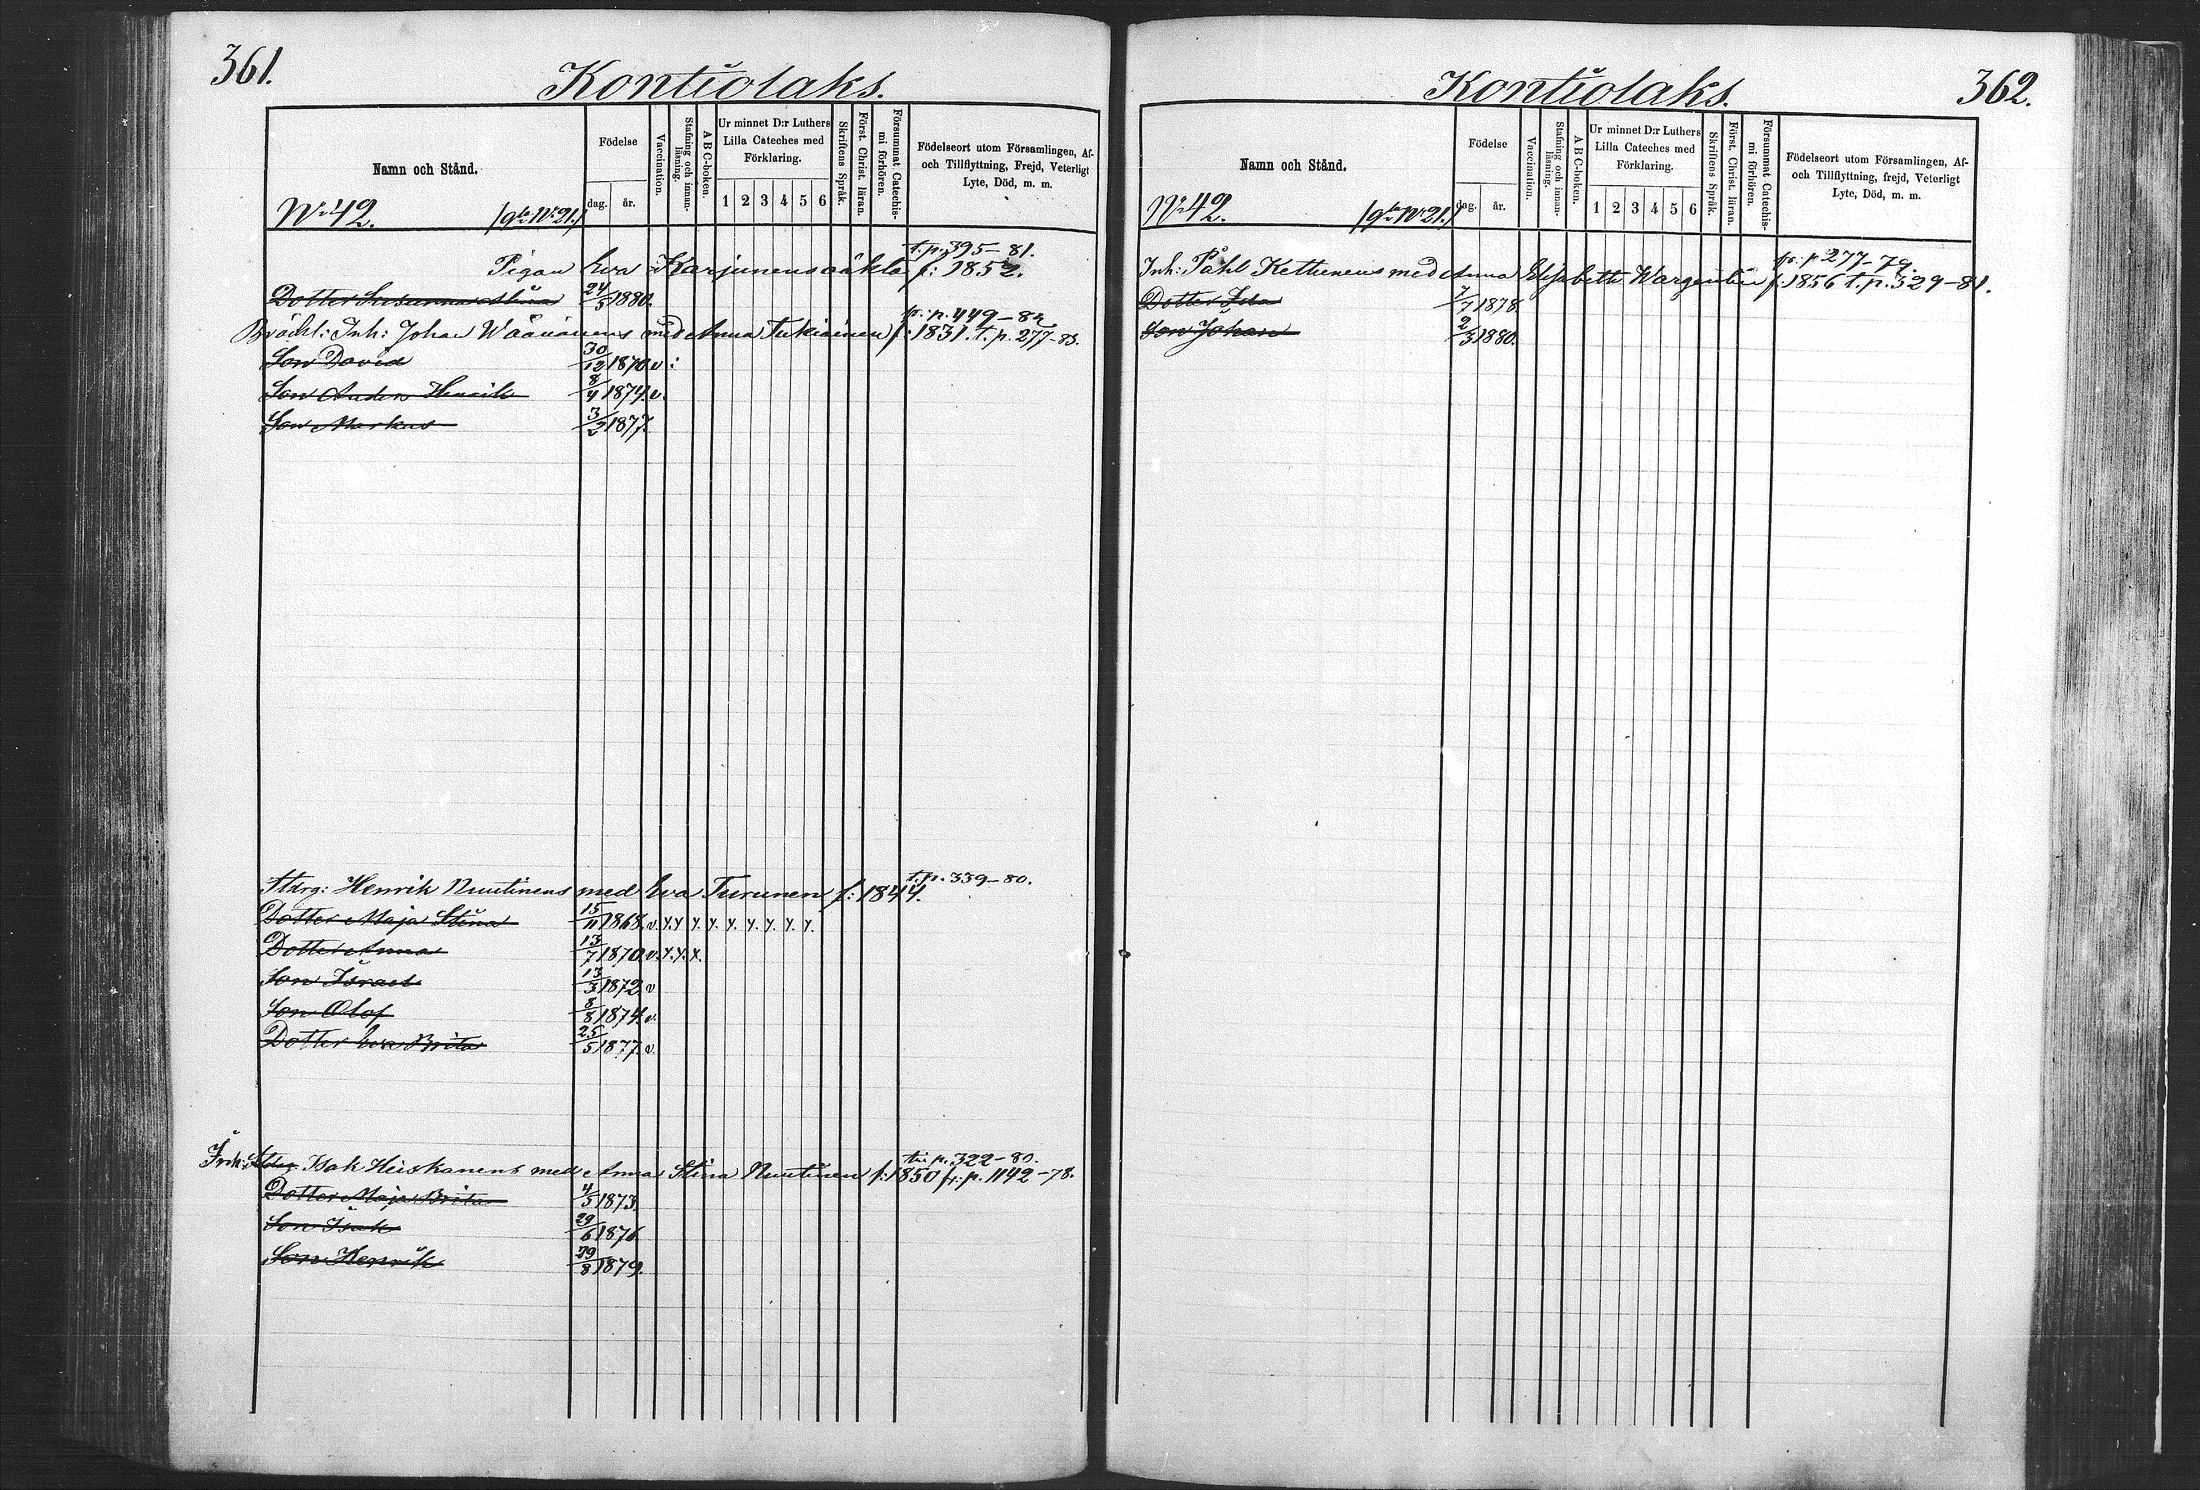 361.
Kontiolaks.
Namn och Stånd.
Födelse
dag. år.
Vaccination.
Stafning och innanläsning.
A B C-boken.
Ur minnet D:r Luthers Lilla Cateches med Förklaring.
1 2 3 4 5 6
Skriftens Språk.
Först. Christ. läran.
Försummat Catechismi förhören.
Födelseort utom Församlingen, Af- och Tillflyttning, Frejd, Veterligt Lyte, Död, m. m.
No 42. /gla No 21./
t. p. 395–81.
Pigan Eva Karjunens oäkta f: 1852.
Dotter Susanna Stina 24/5 1880.
fr: p. 449–82
Inh: Johan Wäänänens med Anna Tukiainen f: 1831. t. p. 277–83.
Son David 30/12 1870. v:
Son Anders Henrik 8/4 1874. v.
Son Markus 3/2 1877.
t. p. 339–80.
Henrik Nuutinens med Eva Turunen f: 1844.
Dotter Maja Stina 15/11 1868. v. x x x. x. x. x. x. x. x.
Dotter Anna 13/7 1870. v. x. x. x.
Son Israel 13/3 1872. v
Son Olof 8/8 1874. v.
Dotter Eva Brita 25/5 1877. v.
p. 322–80.
Isak Heiskanens med Anna Stina Nuutinen f: 1850 fr: p. 1142–78.
Dotter Maja Brita 4/5 1873.
Son Isak 29/6 1876.
Son Henrik 29/8 1879.
362.
Kontiolaks.
Namn och Stånd.
Födelse
dag. år.
Vaccination.
Stafning och innanläsning.
A B C-boken.
Ur minnet D:r Luthers Lilla Cateches med Förklaring.
1 2 3 4 5 6
Skriftens Språk.
Först. Christ. läran.
Försummat Catechismi förhören.
Födelseort utom Församlingen, Af- och Tillflyttning, frejd, Veterligt Lyte, Död, m. m.
No 42. /gla No 21./
fr: p 277–79.
Inh: Påhl Kettunens med Anna Elisabeth Wargentin f: 1856 t. p. 329–81.
Dotter 7/7 1878.
Son Johan 2/3 1880.